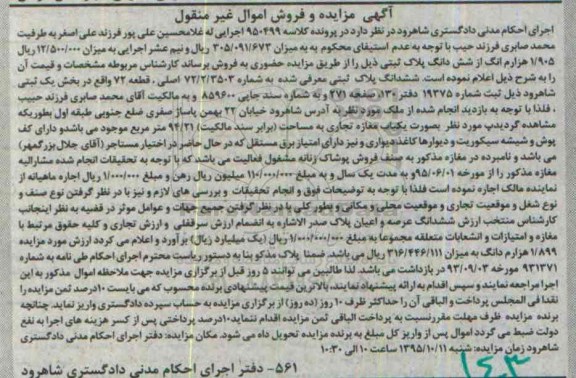 آگهی مزایده و فروش اموال غیر منقول
اجرای احکام مدنی دادگستری شاهرود در نظر دارد در پرونده کلاسه ۹۵۰۴۹۹ اجرایی له غلامحسین علی پور فرزند علی اصغر به طرفیت
محمد صابری فرزند حبیب با توجه به عدم استیفای محکوم به به میزان ۳۰۵/۰۹۱/۶۷۳ ریال و نیم عشر اجرایی به میزان ۱۲/۵۰۰/۰۰۰ ریال
۱/۹۰۵ هزارم انگ از شش دانگ پلاک ثبتی ذیل را از طریق مزایده حضوری به فروش برساند کارشناس مربوطه مشخصات و قیمت آن
را به شرح ذیل اعلام نموده است. ششدانگ پلاک ثبتی معرفی شده به شماره ۷۲/۲/۳۵۰۳ اصلی، قطعه ۷۲ واقع در بخش یک ثبتی
شاهرود ذیل ثبت شماره ۱۹۳۷۵ دفتر ۱۳۰ صفحه ۲۷۱ و به شماره سند چاپی ۸۵۹۶۰۰ و به مالکیت آقای محمد صابری فرزند حبیب
، فلذا با توجه به بازدید انجام شده از ملک مورد نظر به آدرس شاهرود خیابان ۲۲ بهمن پاساژ صفری ضلع جنوبی طبقه اول بطوریکه
مشاهده گردید مورد نظر بصورت یکباب مغازه تجاری به مساحت (برابر سند مالکیت) ۹۴/۲۱ متر مربع موجود می باشد و دارای کف
پوش و شیشه سیکوریت و دیوارها کاغذ دیواری و نیز دارای امتیاز برق مستقل که در حال حاضر در اختیار مستاجر (آقای جلال بزرگمهر)
می باشد و نامبرده در مغازه مذکور به صنف فروش پوشاک زنانه مشغول فعالیت می باشد که با توجه به تحقیقات انجام شده مشارالیه
مغازه مذکور را از مورخه ۹۵/۰۶/۰۱ به مدت یک سال و به مبلغ ۱۱۰/۰۰۰/۰۰۰ میلیون ریال رهن و مبلغ ۱/۰۰۰/۰۰۰ ریال اجاره ماهیانه از
نماینده مالک اجاره نموده است فلذا با توجه به توضیحات فوق و انجام تحقیقات و بررسی های لازم و نیز با در نظر گرفتن نوع صنف و
نوع شغل و موقعیت تجاری و موقعیت محلی و مکانی و بطور کلی با در نظر گرفتن جمیع جهات و عوامل موثر در قضیه به نظر اینجانب
کارشناس منتخب ارزش ششدانگ عرصه و اعیان پلاک صدر الاشاره به انضمام ارزش سرقفلی و ارزش تجاری و کلیه حقوق مرتبط با
مغازه و امتیازات و انشعابات متعلقه مجموعا به مبلغ ۱/۰۰۰/۰۰۰/۰۰۰ ریال (یک میلیارد ریال) برآورد و اعلام می گردد ارزش مورد مزایده
۱/۸۹۹ هزارم دانگ به میزان ۳۱۶/۴۴۶/۱۱۱ ریال می باشد. ضمنا پلاک مذکور بنا به دستور ریاست محترم اجرای احکام طی نامه به شماره
۹۳۱۳۷۱ مورخه ۹۳/۰۹/۰۳ در بازداشت می باشد. لذا طالبین می توانند ۵ روز قبل از برگزاری مزایده جهت ملاحظه اموال مذکور به این
اجرا مراجعه نمایند و سپس اقدام به ارائه پیشنهاد نمایند، بالاترین قیمت پیشنهادی برنده محسوب که می بایست ۱۰درصد ثمن مزایده را
نقدا فی المجلس پرداخت و الباقی آن را حداکثر ظرف ۱۰ روز (ده روز) از برگزاری مزایده به حساب سپرده دادگستری واریز نماید. چنانچه
برنده مزایده ظرف مهلت مقرر نسبت به پرداخت الباقی ثمن مزایده اقدام ننماید ۱۰درصد پرداختی پس از کسر هزینه های اجرا به نفع
دولت ضبط می گردد اموال پس از واریز کل مبلغ به برنده مزایده تحویل داده می شود. مکان مزایده: دفتر اجرای احکام مدنی دادگستری
شاهرود زمان مزایده: شنبه ۱۳۹۵/۱۰/۱۱ ساعت ۱۰ الی ۱۰:۳۰
۵۶۱- دفتر اجرای احکام مدنی دادگستری شاهرود